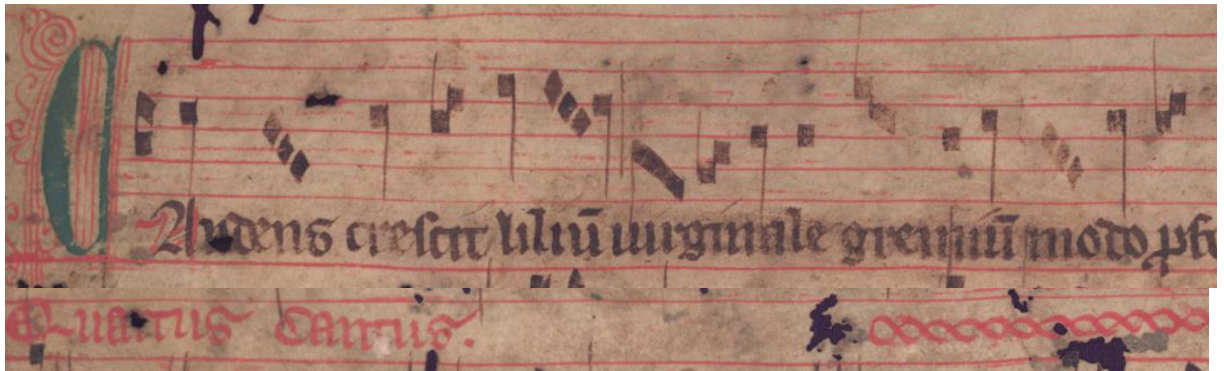 CAndens crescit liliū uirginale gremiū modo
Quartus Cantus.